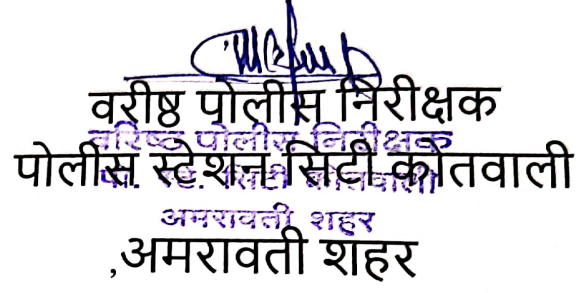 वरीष्ठ पोलीस निरीक्षक
वरिष्ठ पोलीस निरीक्षक
पोलीस स्टेशन सिटी कोतवाली
पो. स्टे. सिटी कोतवाली
अमरावती शहर
,अमरावती शहर